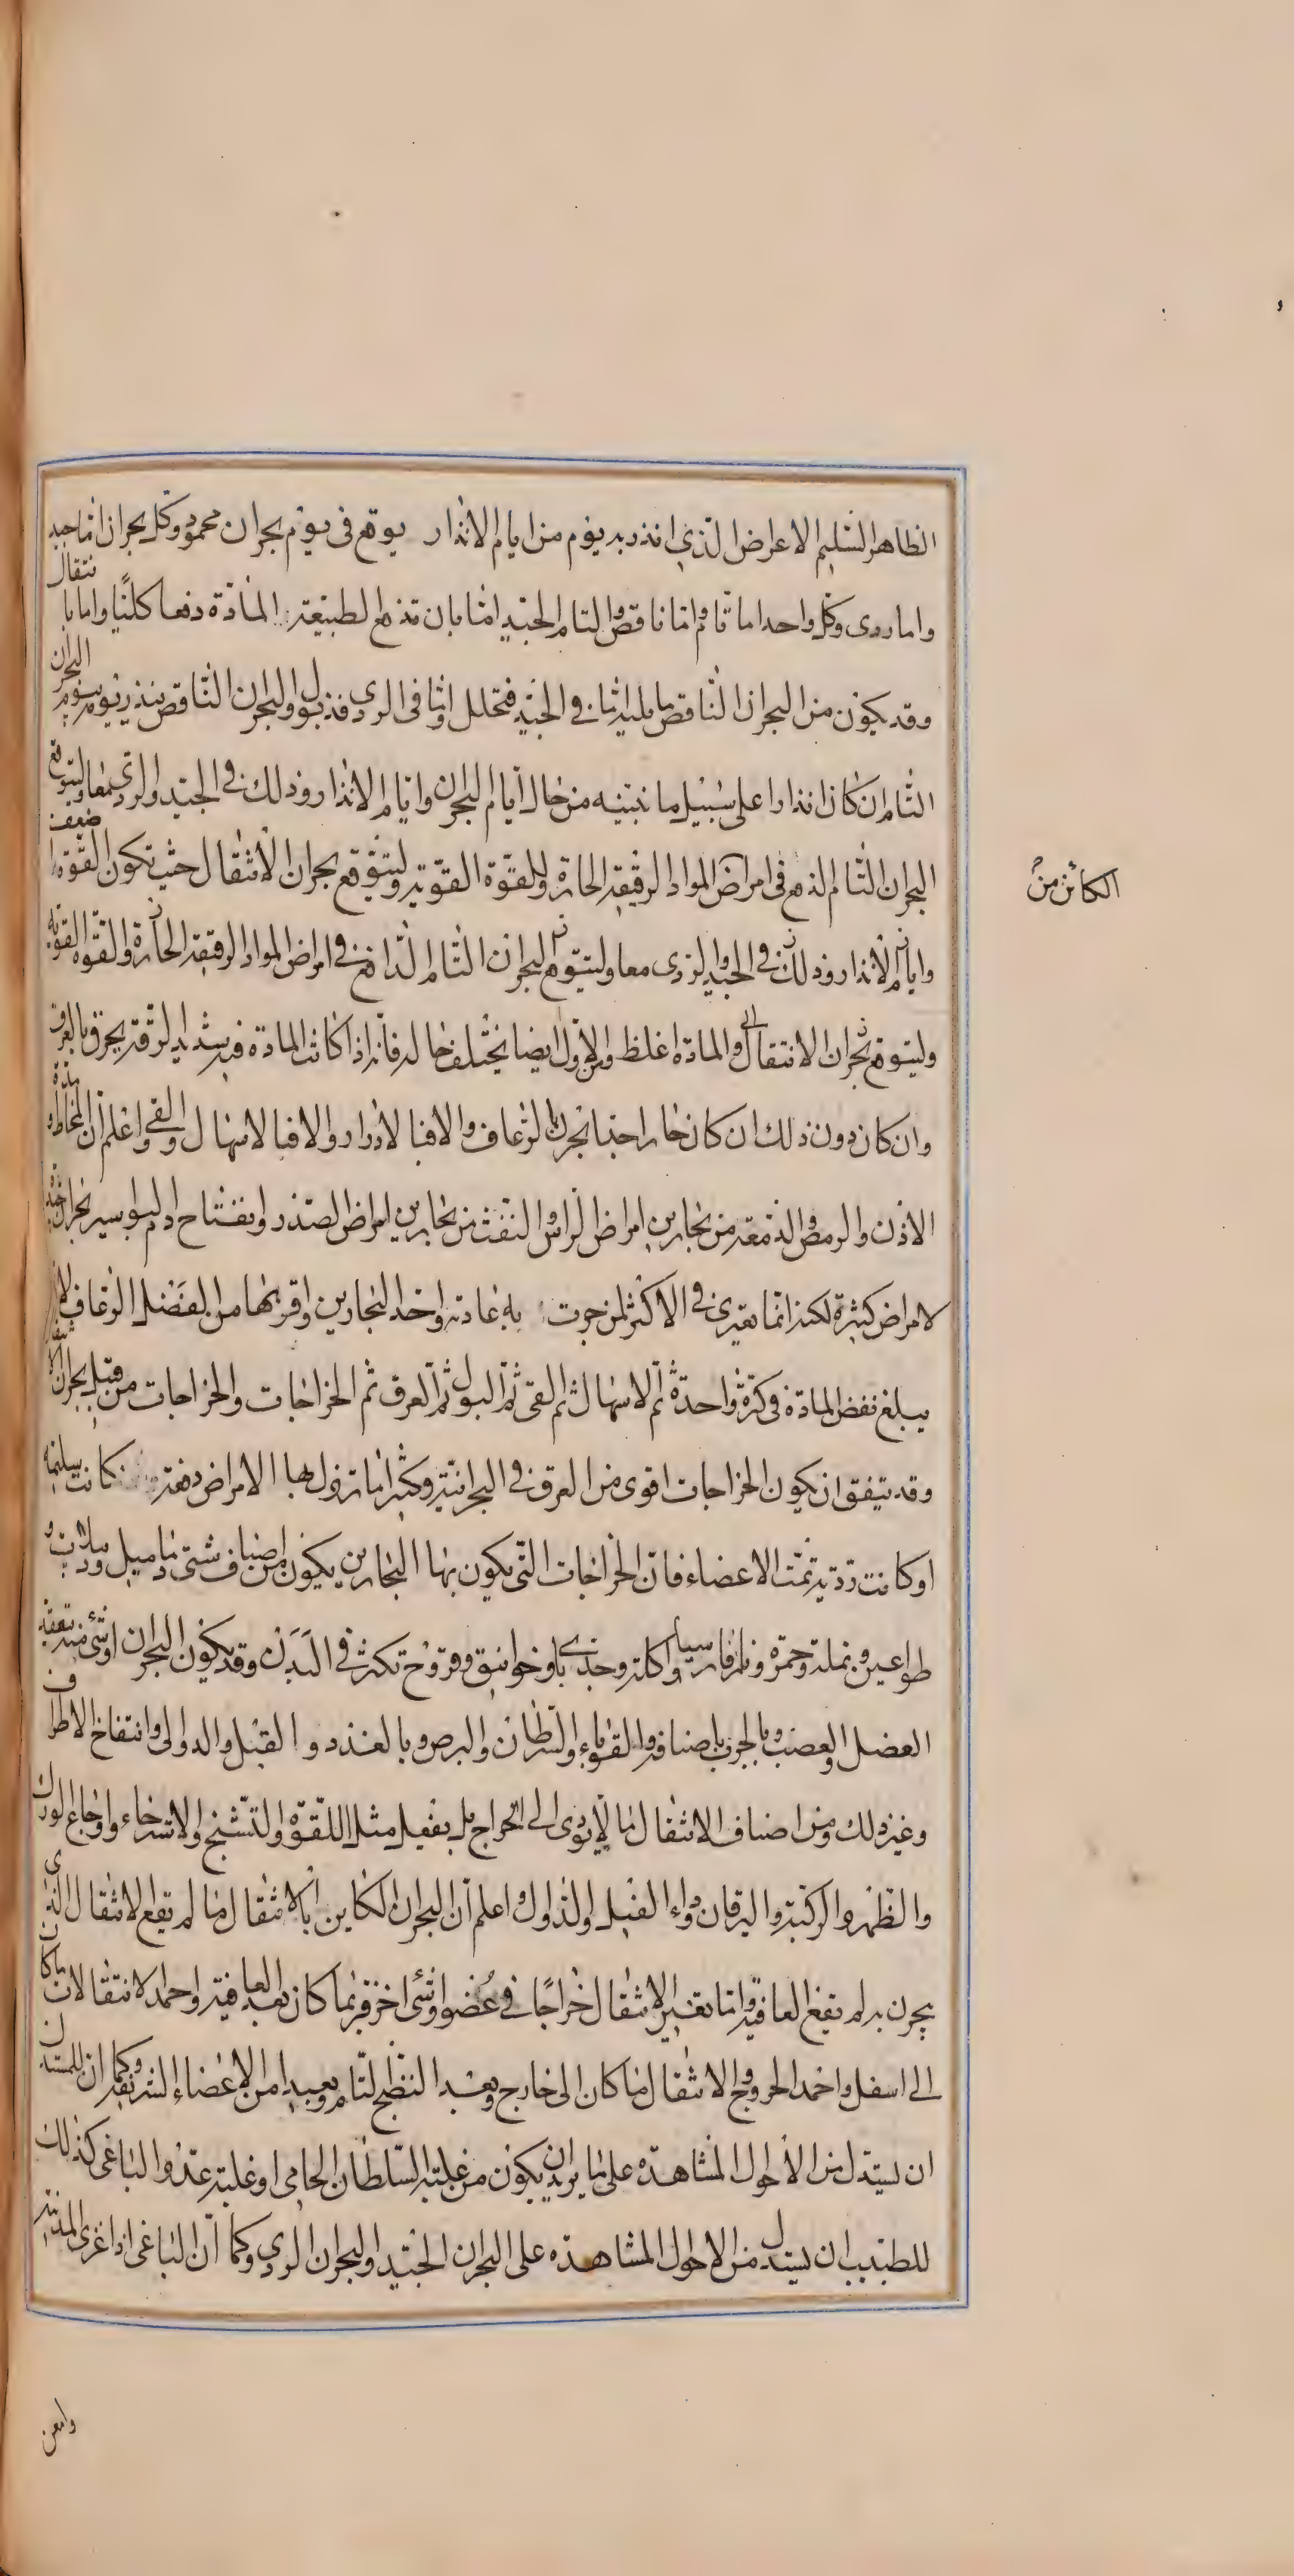 الظاهر السليم الاعراض الذي انذر به يوم من ايام الانذار يوقع في يوم بحران محمود وكل بحران اما جيد
واما ردى وكل واحد اما تام واما ناقص والتام الجيد اما بان تدفع الطبيعة المادة دفعا كليا واما بانتقال
وقد يكون من البحران الناقص ما يليه اما في الجيد فتحلل واما في الردي فذبول والبحران الناقص ينذر بيوم البحران
التام ان كان انذارا على سبيل ما نبينه من حال ايام البحران وايام الانذار وذلك في الجيد والردي معا وليتوقع
البحران التام الدفع في امراض المواد الرقيقة الحارة وللقوة القوية وليتوقع بحران الانتقال حيث تكون القوة اضعف
وايام الانذار وذلك في الجيد والردى معا وليتوقع البحران التام الدافع في امراض المواد الرقيقة الحارة والقوة القوية
وليتوقع بحران الانتقال والمادة اغلظ والاول ايضا يختلف حاله فانه اذا كانت المادة فيه شديد الرقة بحرن بالعرق
وان كان دون ذلك ان كان حارا جدا بحرن بالرعاف والا فبالادرار والا فبالاسهال والقي واعلم ان المخاط ومدة
الاذن والرمص والدمعة من بحارين امراض الراس والنفث من بحارين امراض الصدر وانفتاح دم البواسير بحران جيد
لامراض كثيرة لكنه انما يعترى في الاكثر لمن جرت به عادته واحد البحارين واقربها من الفضل الرعاف لانه
يبلغ نفض المادة في كرة واحدة ثم الاسهال ثم القي ثم البول ثم العرق ثم الخراجات والخراجات من قبيل بحران الانتقال
وقد يتفق ان يكون الخراجات اقوى من العرق في البحرانية وكثيرا ما تزول بها الامراض دفعة كانت سليمة
او كانت ردية تمت الاعضاء فان الخراجات التي يكون بها البحارين يكون من اصناف شتى دماميل ودبيلات و
طواعين ونملة وحمرة ونار فارسيا واكلة وجدري باو خوانيق وقروح تكثر في البدن وقد يكون البحران او شي منه بتعقد
العضل والعصب وبالجرب باصنافه والقوباء والسرطان والبرص وبالغدد والفيل والدوالى وانتفاخ الاطراف
وغير ذلك ومن اصناف الانتقال ما لا يؤدى الى الخراج بل يفعل مثل اللقوة والتشنج والاسترخاء واوجاع الورك
والظهر والركبة واليرقان وداء الفيل والدوالي واعلم ان البحران الكاين بالانتقال ما لم يقع الانتقال الذي
بحرن به لم يقع العافية واما تغير الانتقال خراجا في عضوا وشى اخر فربما كان بعد العافية واحمد الانتقالات ما كان
الى اسفل واحمد الخروج والانتقال ما كان الى خارج وبعد النضج التام وبعيدا من الاعضاء الشريفة وكما ان للمستدل
ان يستدل من الاحوال المشاهدة على ما يريد ان يكون من غلبة السلطان الحامي او غلبة عدوا الباغى كذلك
للطبيب ان يستدل من الاحوال المشاهدة على البحران الجيد والبحران الردي وكما ان الباغى اذا غزى المدينة
الكائن من
وامعن